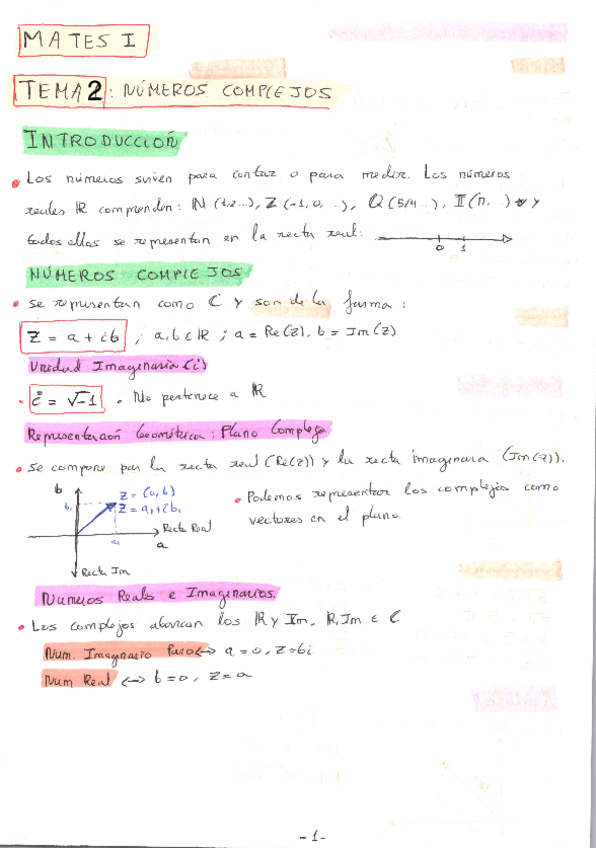 MATES I
TEMA 2: NÚMEROS COMPLEJOS
INTRODUCCIÓN
• Los números sirven para contar o para medir. Los números
reales ℝ comprenden: ℕ (1,2...), ℤ (-1, 0, ...), ℚ (5/4...), 𝕀 (π, ...) y
todos ellos se representan en la recta real:
0 1
NÚMEROS COMPLEJOS
• Se representan como ℂ y son de la forma:
Z = a + ib ; a, b ∈ ℝ ; a = Re(Z), b = Im(Z)
Unidad Imaginaria (i)
• i = √-1 . No pertenece a ℝ
Representación Geométrica: Plano Complejo
• Se compone por la recta real (Re(z)) y la recta imaginaria (Im(z)).
b
Z = (a, b)
b₁
Z = a₁ + ib₁
Recta Real
a₁
a
Recta Im
• Podemos representar los complejos como
vectores en el plano.
Números Reales e Imaginarios
• Los complejos abarcan los ℝ y Im. ℝ, Im ∈ ℂ
Num. Imaginario Puro ↔ a = 0, Z = bi
Num Real ↔ b = 0, Z = a
- 1 -